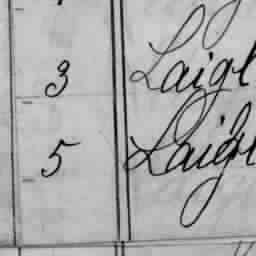 3 Laigl
5 Laigl